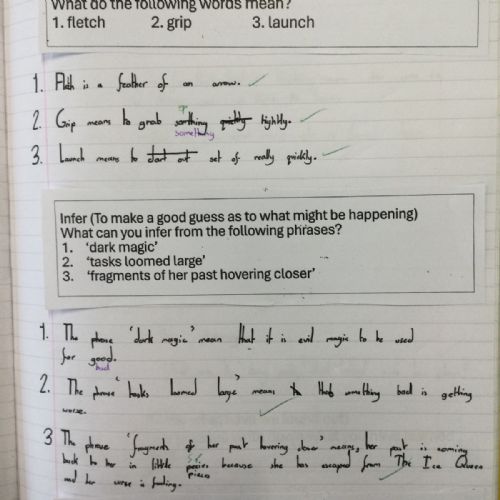 What do the following words mean?
1. fletch 2. grip 3. launch
1. Fleth is a feather of an arrow.
2. Grip means to grab somthing quickly tightly.
something
3. Launch means to start out set of really quickly.
Infer (To make a good guess as to what might be happening)
What can you infer from the following phrases?
1. 'dark magic'
2. 'tasks loomed large'
3. 'fragments of her past hovering closer'
1. The phrase 'dark magic' mean that it is evil magic to be used
for good.
bad
2. The phrase 'tasks loomed large' means that something bad is getting
worse.
3 The phrase 'fragments of her past hovering closer' means, her past is coming
back to her in little peices because she has escaped from The Ice Queen
pieces
and her curse is fading.